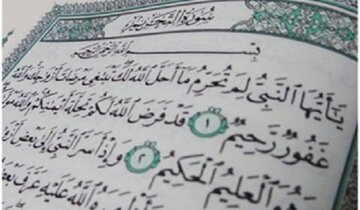 سُورَةُ التَّحْرِيمِ
بِسْمِ اللَّهِ الرَّحْمَٰنِ الرَّحِيمِ
يَٰٓأَيُّهَا ٱلنَّبِىُّ لِمَ تُحَرِّمُ مَآ أَحَلَّ ٱللَّهُ لَكَ تَبْتَغِى مَرْضَاتَ أَزْوَٰجِكَ وَٱللَّهُ
غَفُورٌ رَّحِيمٌ ١ قَدْ فَرَضَ ٱللَّهُ لَكُمْ تَحِلَّةَ أَيْمَٰنِكُمْ وَٱللَّهُ
وَهُوَ ٱلْعَلِيمُ ٱلْحَكِيمُ ٢ وَإِذْ أَسَرَّ ٱلنَّبِىُّ إِلَىٰ بَعْضِ أَزْوَٰجِهِ
وَأَظْهَرَهُ ٱللَّهُ عَلَيْهِ عَرَّفَ بَعْضَهُ